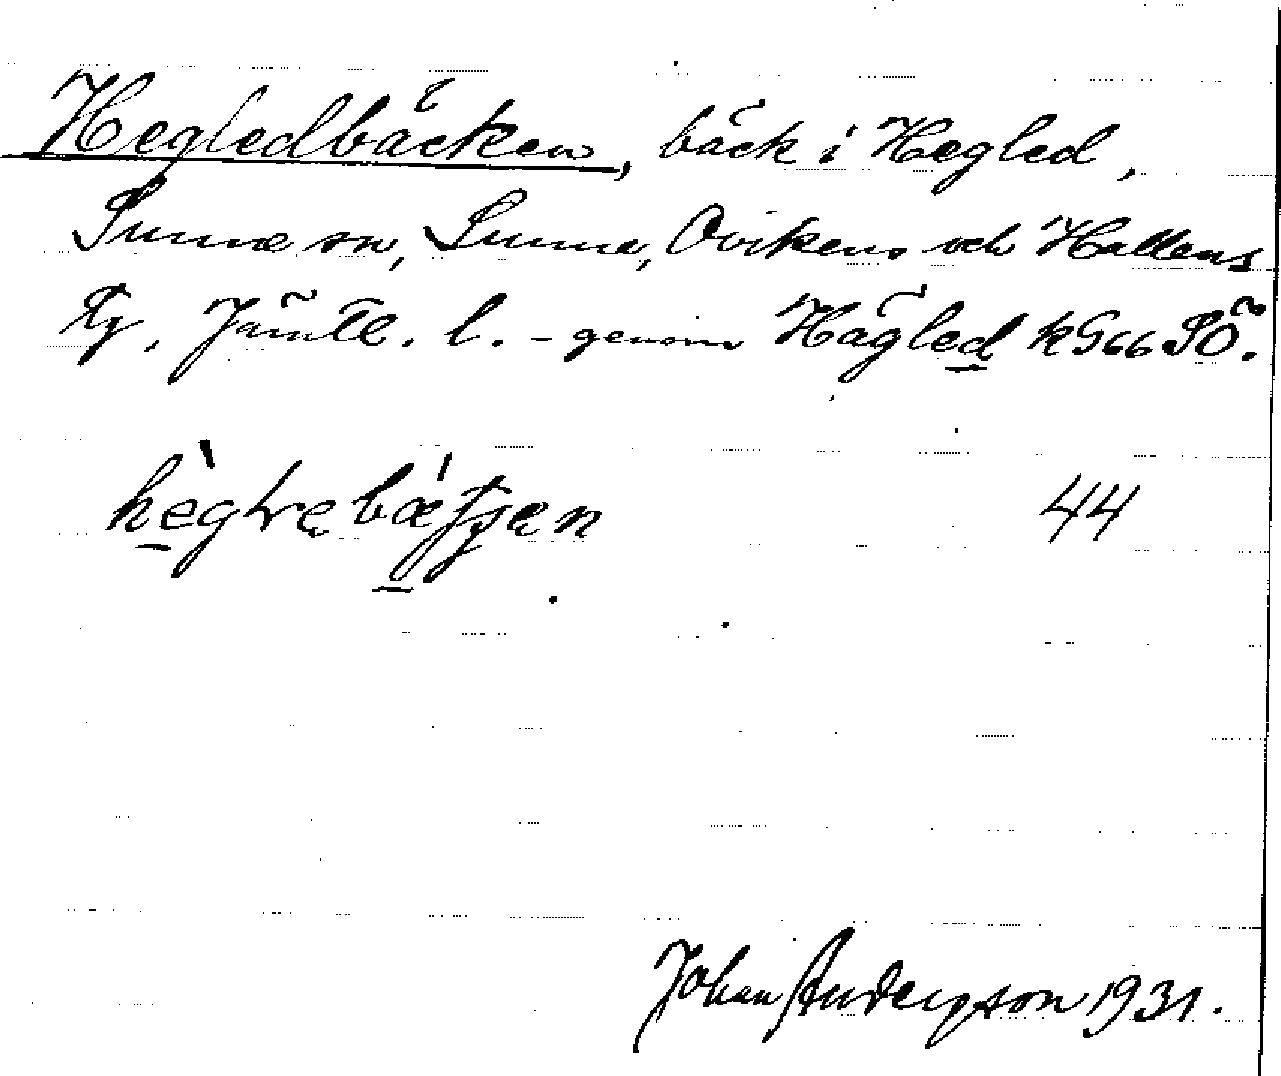 Hegledbäcken, bäck i Hegled,
Sunne sn, Sunne, Ovikens och Hallens
tg, Jämtl. l. - genom Hägled k G66 SÖ.
44
Johan Andersson 1931.